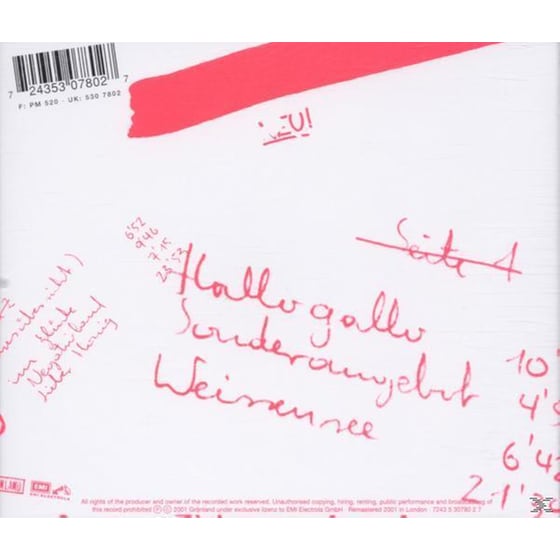 7 24353 07802 7
F: PM 520 - UK: 530 7802
NEU!
Seite 1
6'52
9'46
7'15
23'53
Hallogallo
Sonderangebot
Weissensee
10
4'5
6'42
21'3
im Glück
Negativland
Lieber Honig
EMI
EMI ELECTROLA
All rights of the producer and owner of the recorded work reserved. Unauthorised copying, hiring, renting, public performance and broadcasting of
this record prohibited Ⓟ © 2001 Grönland under exclusive licenz to EMI Electrola GmbH Remastered 2001 in London · 7243 5 30780 2 7